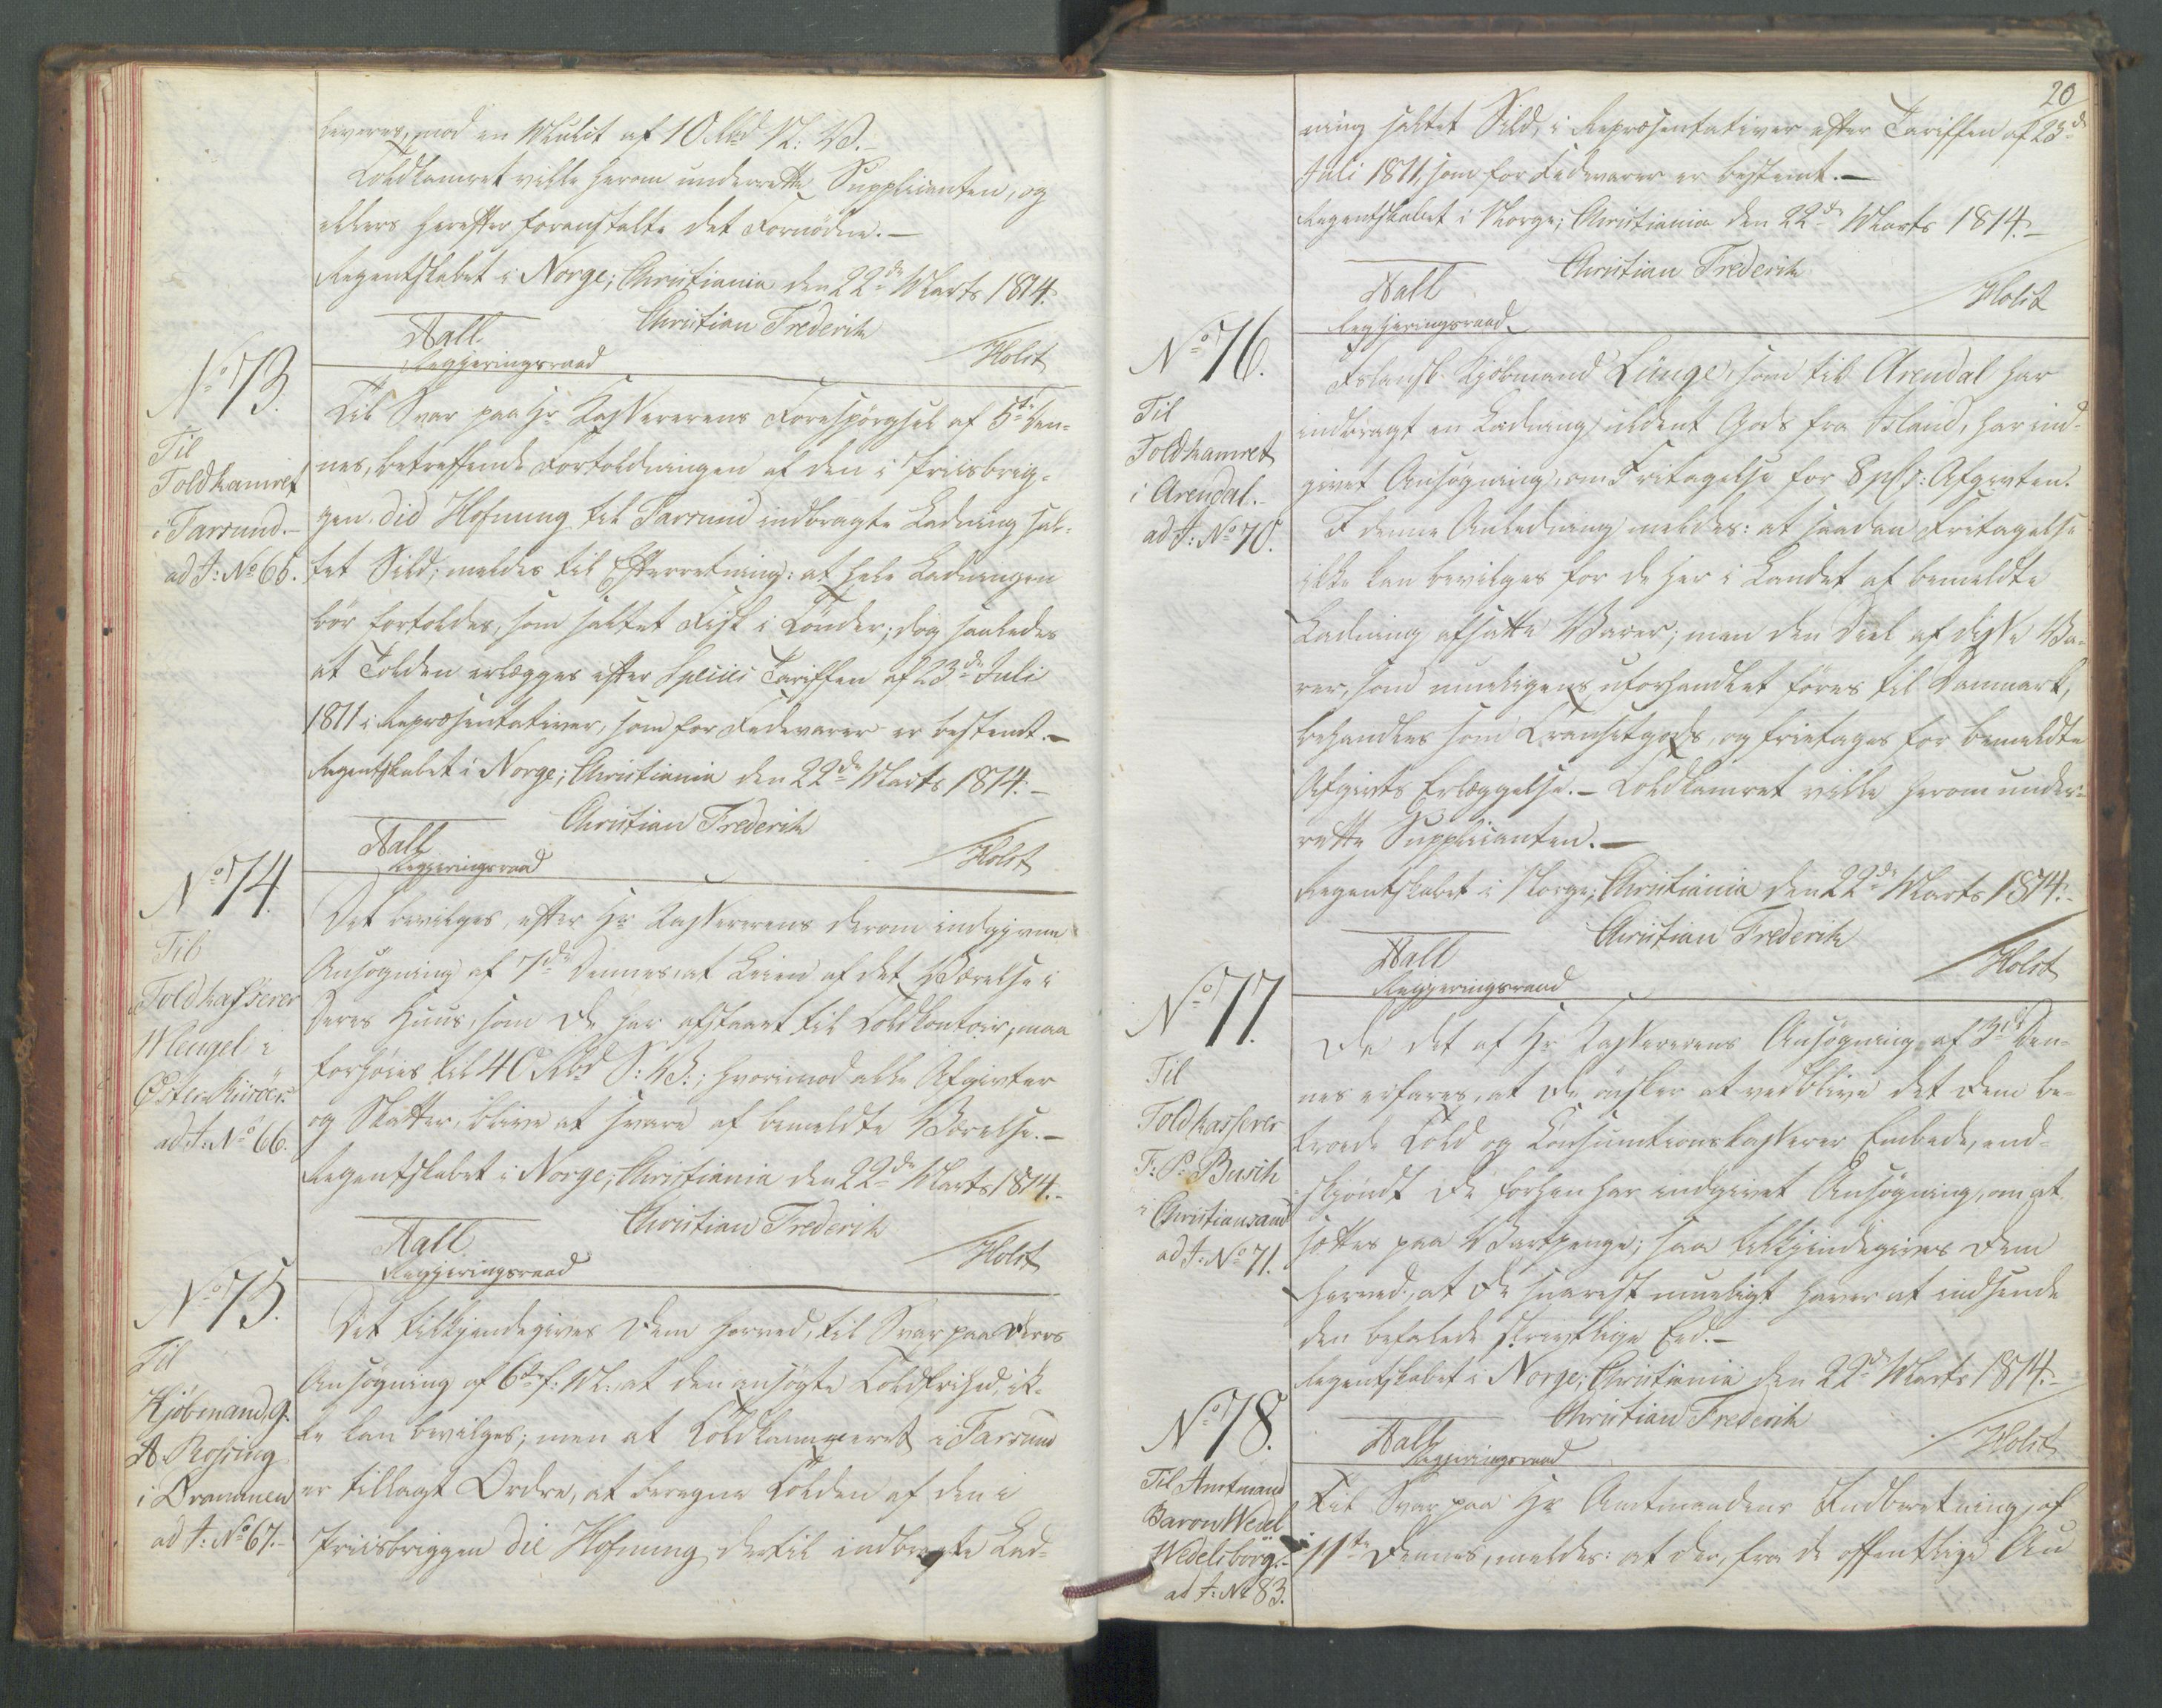 leveres, mod en Mulct af 10 Rbd N. V.-
Toldkamret ville herom underrette Supplicanten, og
ellers herefter foranstalte det Fornødne.-
Regentskabet i Norge; Christiania den 22de Marts 1814.
Christian Frederik
Aall
Regjeringsraad
Holst
No 73.
Til
Toldkamret
i Farsund.-
ad J: No 65.
Til Svar paa Hr Kassererens Forespørgsel af 5te Den-
nes, betreffende Fortoldningen af den i Priisbrig-
gen did Hofnung til Farsund indbragte Ladning sal-
tet Sild, meldes til Efterretning: at hele Ladningen
bør fortoldes, som saltet Fisk i Tønder; dog saaledes
at Tolden erlægges efter Species Tariffen af 23de Juli
1811 i Repræsentativer, som for Fedevarer er bestemt.-
Regentskabet i Norge; Christiania den 22de Marts 1814.-
Christian Frederik
Aall
Regjeringsraad
Holst
No 74.
Til
Toldkasserer
Mengel i
Øster Riisöer.
ad J: No 66.
Det bevilges, efter Hr Kassererens derom indgivne
Ansøgning af 7de Dennes, at Leien af det Værelse i
Deres Huus, som De har afstaaet til Toldkontoir, maa
forhöies til 40 Rbd S: V:; hvorimod alle Afgivter
og Skatter, blive at svare af bemeldte Værelse.-
Regentskabet i Norge; Christiania den 22de Marts 1814.-
Christian Frederik
Aall
Regjeringsraad
Holst
No 75.
Til
Kjöbmand G.
A. Rossing
i Drammen
ad J: No 67.-
Det tilkjendegives Dem herved, til Svar paa Deres
Ansøgning af 6te f: M:, at den ansøgte Toldfrihed, ik-
ke kan bevilges; men at Toldkammeret i Farsund
er tillagt Ordre, at beregne Tolden af den i
Priisbriggen die Hofnung dertil indbragte Lad-
20
ning saltet Sild, i Repræsentativer efter Tariffen af 23de
Juli 1811, som for Fedevarer er bestemt.-
Regentskabet i Norge; Christiania den 22de Marts 1814.-
Christian Frederik
Aall
Regjeringsraad
Holst
No 76.
Til
Toldkamret
i Arendal.-
ad J: No 70.
Islandsk Kjöbmand Lünge, som til Arendal har
indbragt en Ladning uldent Gods fra Island, har ind-
givet Ansøgning, om Fritagelse for 8 pCt: Afgivten.
I denne Anledning meldes: at saadan Fritagelse
ikke kan bevilges for de her i Landet af bemeldte
Ladning afsatte Varer; men den Deel af disse Va-
rer, som mueligens uforhandlet föres til Danmark,
behandles som Transitgods, og fritages for bemeldte
Afgivts Erlæggelse.- Toldkamret ville herom under-
rette Supplicanten.-
Regentskabet i Norge; Christiania den 22de Marts 1814.-
Christian Frederik
Aall
Regjeringsraad
Holst
No 77.
Til
Toldkasserer
F: P: Busch
i Christiansand
ad J: No 71.
Da det af Hr Kassererens Ansøgning af 3de Den-
nes erfares, at De ønsker at vedblive det Dem be-
troede Told og Consumtionskasserer Embede, end-
skjöndt De forhen har indgivet Ansøgning, om at
sættes paa Vartpenge; saa tilkjendegives Dem
herved, at De snarest mueligt haver at indsende
den befalede skrivtlige Eed.-
Regentskabet i Norge; Christiania den 22de Marts 1814.-
Christian Frederik
Aall
Regjeringsraad
Holst
No 78.
Til Amtmand
Baron Wedel
Wedelsborg.-
ad J: No 83.
Til Svar paa Hr Amtmandens Indberetning, af
11te Dennes, meldes: at der, fra de offentlige Au